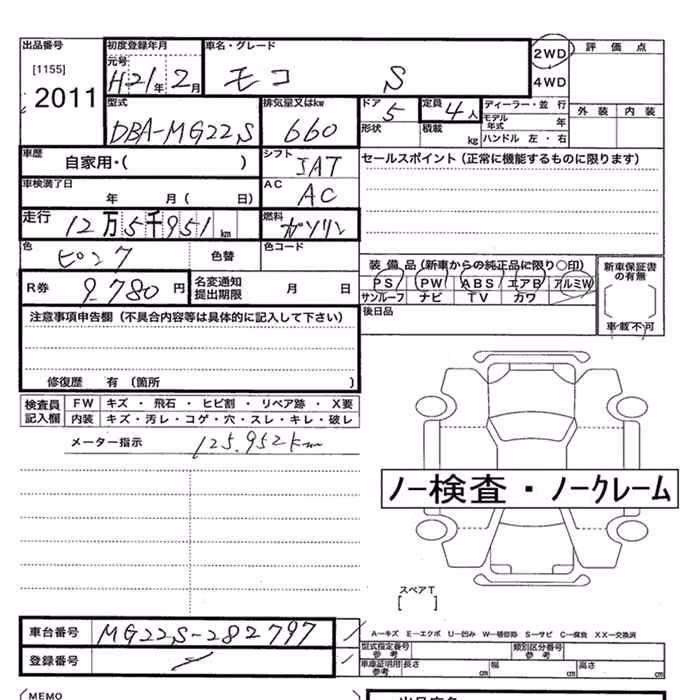 出品番号 初度登録年月 車名・グレード 2WD 評価点
[1155] 元号
2011 H21年2月 モコ S 4WD
型式 排気量又はkw ドア 定員 ディーラー・並行 外装 内装
DBA-MG22S 660 5 4人 モデル年式 年
形状 積載 kg ハンドル 左・右
車歴 自家用・( ) シフト IAT セールスポイント (正常に機能するものに限ります)
車検満了日 年 月( 日) AC AC
走行 12万5千951km 燃料 ガソリン
色 ピンク 色替 色コード
装備品 (新車からの純正品に限り○印) 新車保証書の有無
PS PW ABS エアB アルミW
R券 9,780円 名変通知提出期限 月 日 サンルーフ ナビ TV カワ
車載不可
注意事項申告欄 (不具合内容等は具体的に記入して下さい) 後日品
修復歴 有 (箇所 )
検査員記入欄 FW キズ・飛石・ヒビ割・リペア跡・X要
内装 キズ・汚レ・コゲ・穴・スレ・キレ・破レ
メーター指示 125,952km
ノー検査・ノークレーム
スペアT
[ ]
車台番号 MG22S-282797
A-キズ E-エクボ U-凹み W-補修跡 S-サビ C-腐食 XX-交換済
型式指定番号 参考 類別区分番号 参考
登録番号 車庫証明用 参考 長さ cm 幅 cm 高さ cm
(MEMO